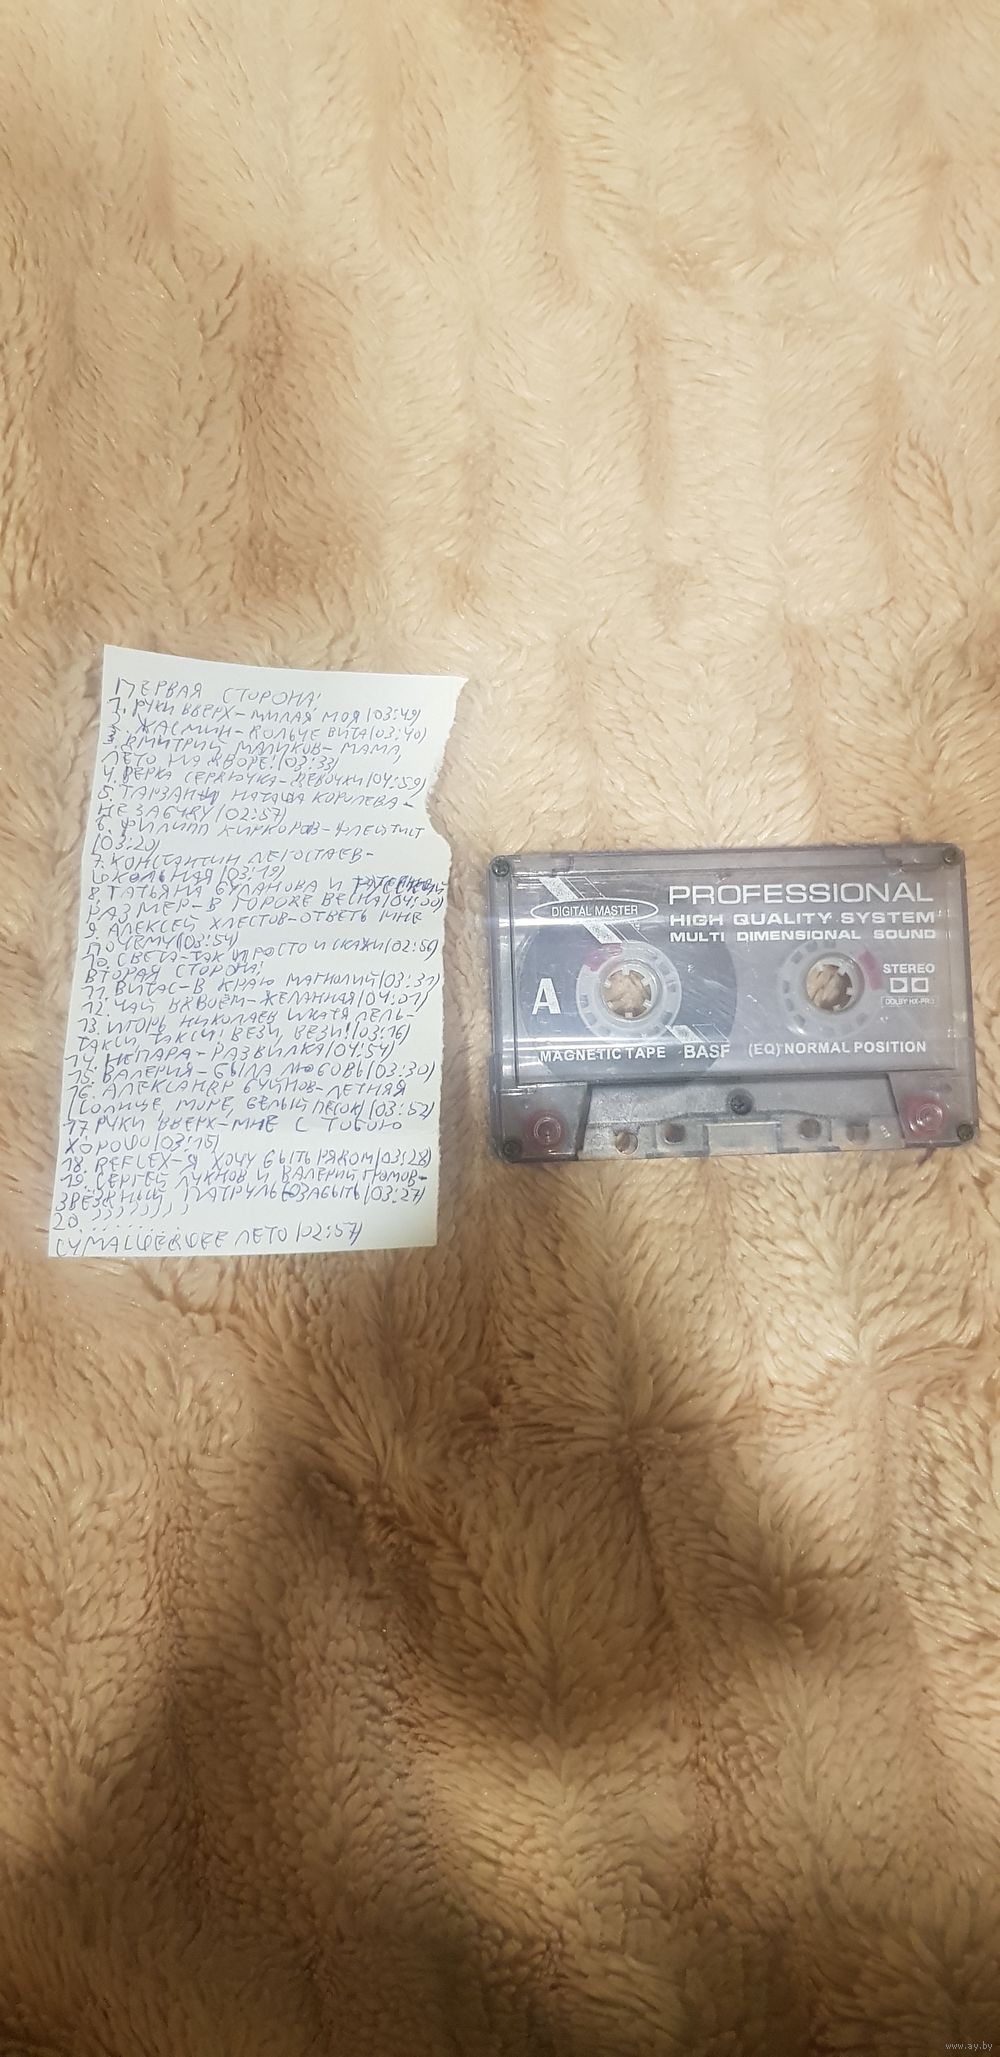 ПЕРВАЯ СТОРОНА!
1. РУКИ ВВЕРХ-МИЛАЯ МОЯ(03:49)
2. ЖАСМИН-ДОЛЬЧЕ ВИТА(03:40)
3. ДМИТРИЙ МАЛИКОВ-МАМА,
ЛЕТО НА ДВОРЕ!(03:33)
4. ВЕРКА СЕРДЮЧКА-ДЕВОЧКИ(04:59)
5. ТАРЗАН И НАТАША КОРОЛЕВА-
НЕ ЗАБУДУ(02:57)
6. ФИЛИПП КИРКОРОВ-ФЛЕЙТИСТ
(03:20)
7. КОНСТАНТИН ЛЕГОСТАЕВ-
ШКОЛЬНАЯ(03:19)
8. ТАТЬЯНА БУЛАНОВА И РУССКИЙ
РАЗМЕР-В ГОРОДЕ ВЕСНА(04:00)
9. АЛЕКСЕЙ ХЛЕСТОВ-ОТВЕТЬ МНЕ
ПОЧЕМУ(03:54)
10. СВЕТА-ТАК ПРОСТО И СКАЖИ(02:56)
ВТОРАЯ СТОРОНА!
11. ВИТАС-В КРАЮ МАГНОЛИЙ(03:31)
12. ЧАЙ ВДВОЁМ-ЖЕЛАННАЯ(04:01)
13. ИГОРЬ НИКОЛАЕВ И КАТЯ ЛЕЛЬ-
ТАКСИ, ТАКСИ! ВЕЗИ, ВЕЗИ!(03:16)
14. НЕПАРА-РАЗВИЛКА(04:54)
15. ВАЛЕРИЯ-БЫЛА ЛЮБОВЬ(03:30)
16. АЛЕКСАНДР БУЙНОВ-ЛЕТНЯЯ
(СОЛНЦЕ, МОРЕ, БЕЛЫЙ ПЕСОК)(03:52)
17. РУКИ ВВЕРХ-МНЕ С ТОБОЮ
ХОРОШО(03:15)
18. REFLEX-Я ХОЧУ БЫТЬ РЯДОМ(03:28)
19. СЕРГЕЙ ЛУКНОВ И ВАЛЕРИЙ ГРОМОВ-
ЗВЁЗДНЫЙ ПАТРУЛЬ ЗАБЫТЬ(03:27)
20.
ЛЕТО(02:57)
DIGITAL MASTER
PROFESSIONAL
HIGH QUALITY SYSTEM
MULTI DIMENSIONAL SOUND
A
STEREO
DOLBY HX-PRO
MAGNETIC TAPE BASF (EQ) NORMAL POSITION
www.ay.by